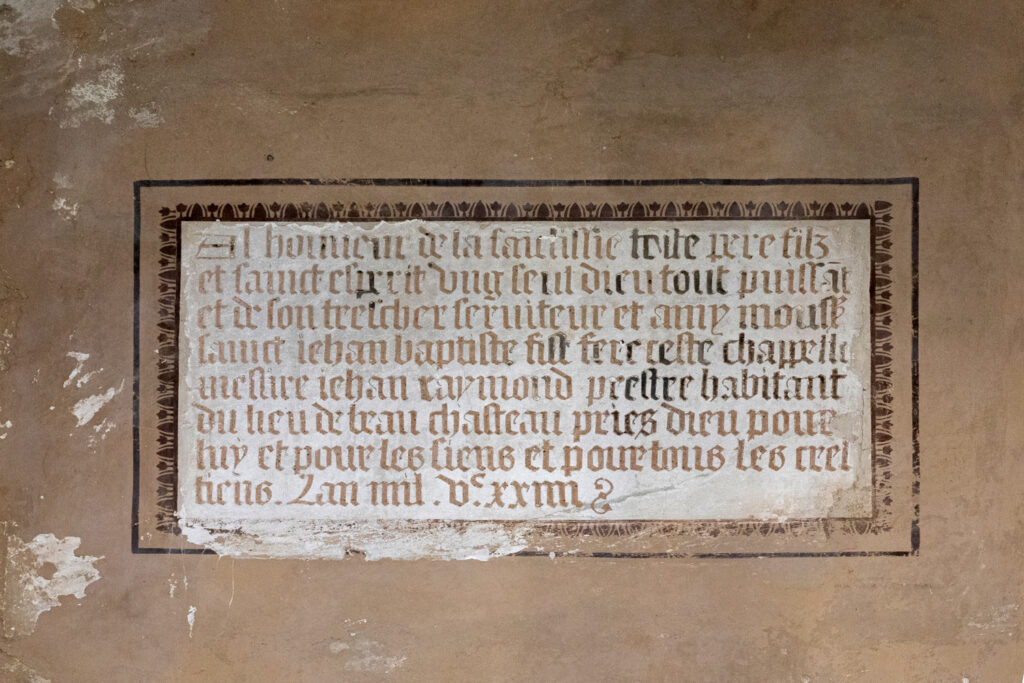 Al honneur de la sainctissie trite pere filz
et sainct esperit ung seul dieu tout puissāt
et de son trescher serviteur et amy monss
sainct iehan baptiste fist fere ceste chappelle
messire iehan raymond prestre habitant
du lieu de beau chasteau pries dieu pour
luy et pour les siens et pour tous les crel
tiens. Lan mil . vc xxiiii